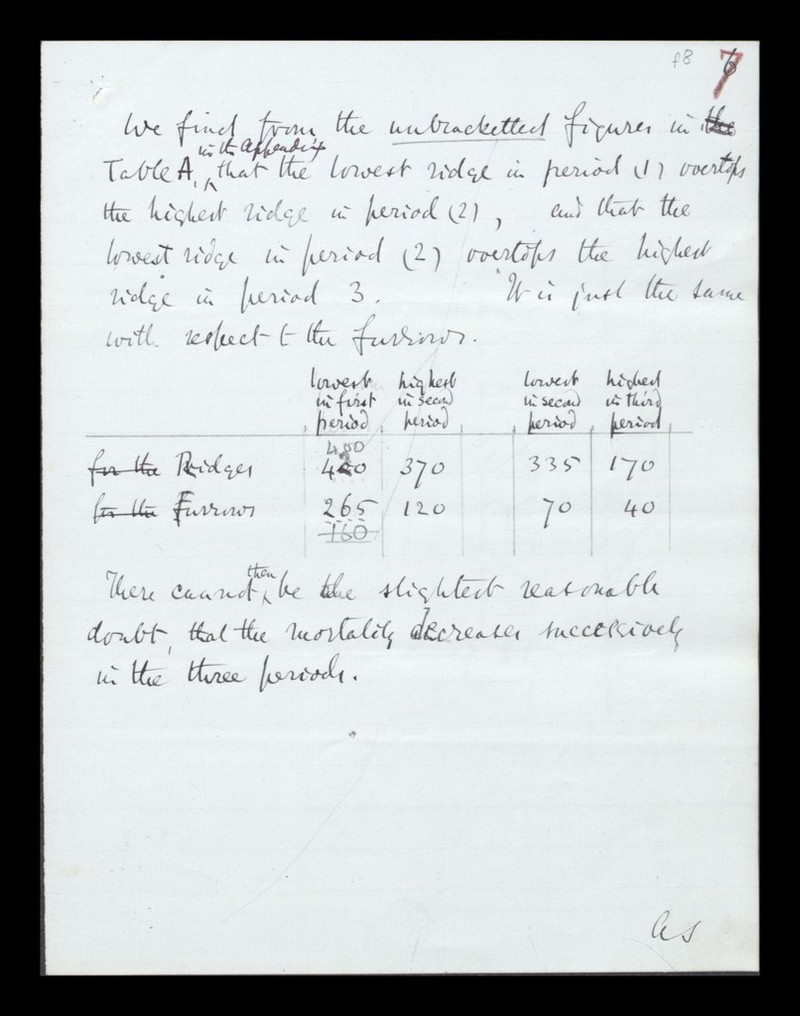 f8 7
We find from the unbracketted figures in the
in the appendix
Table A, that the lowest ridge in period (1) overtops
the highest ridge in period (2), and that the
lowest ridge in period (2) overtops the highest
ridge in period 3. It is just the same
with respect to the furrows.
lowest highest lowest highest
in first in second in second in third
period period period period
400
for the Ridges 420 370 335 170
for the Furrows 265 120 70 40
160
then
There cannot be the slightest reasonable
doubt, that the mortality decreases successively
in the three periods.